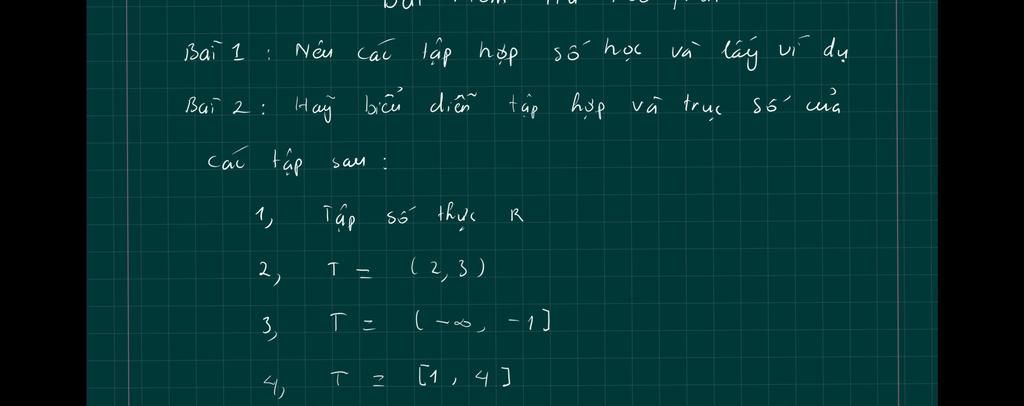 Bài 1 : Nêu các tập hợp số học và lấy ví dụ
Bài 2 : Hãy biểu diễn tập hợp và trục số của
các tập sau :
1, Tập số thực R
2, T = (2,3)
3, T = (-∞, -1]
4, T = [1, 4]